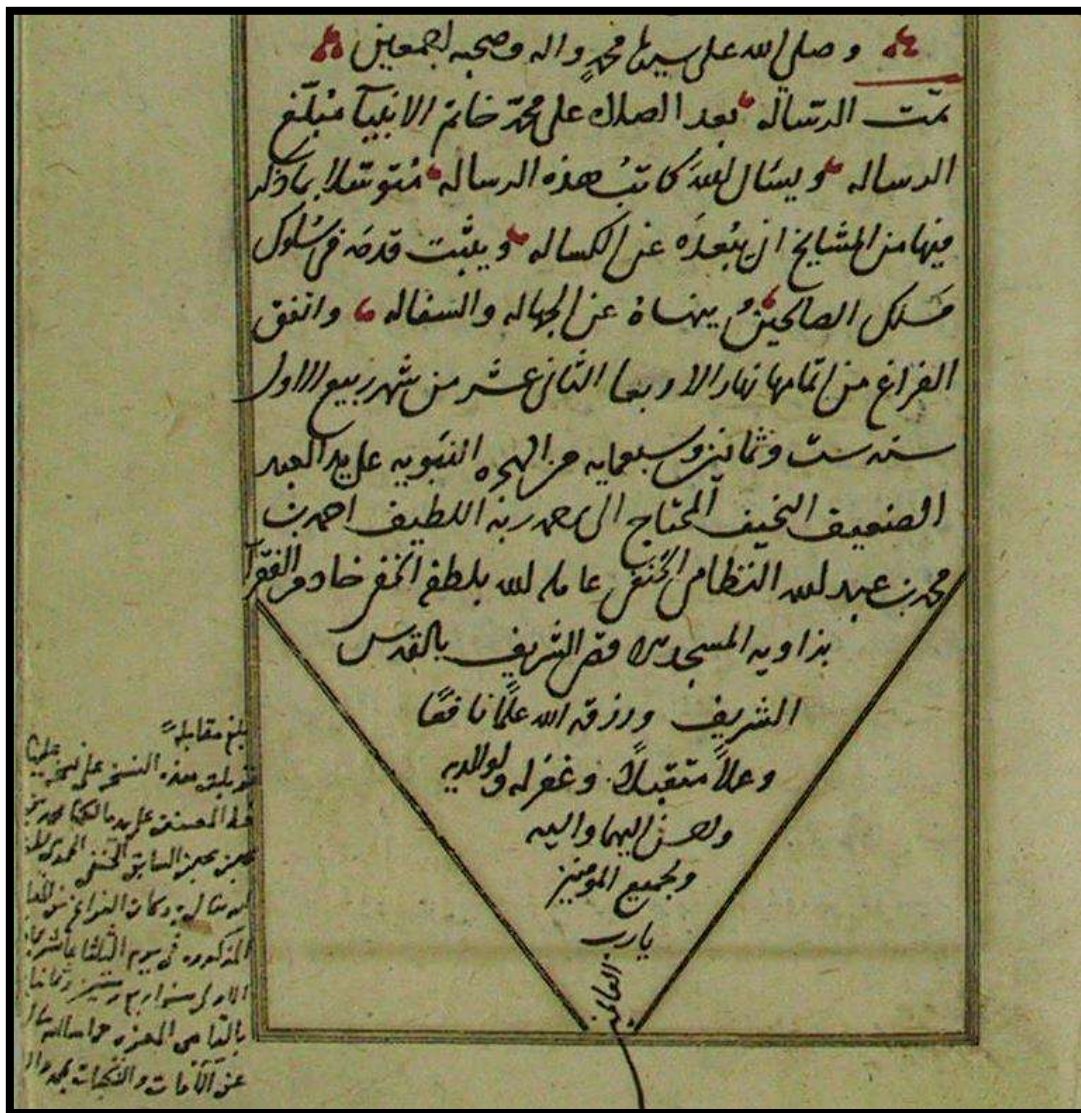 وصلى الله على سيدنا محمد واله وصحبه اجمعين
تمّت الرساله بعد الصلاه على محمّد خاتم الانبيآ مُبلّغ
الرساله ويسٔال الله كاتبُ هذه الرساله مُتوسّلا بما ذكر
فيها من المشايخ ان يبُعدَه عن الكساله ويثبّت قدمَه في سُلوك
مَسلك الصالحين وينهاهُ عن الجهاله والسفاله واتفق
الفراغ من اتمامها نهار الاربعا الثاني عشر من شهر ربيع الاول
سنه ست وثمانين وسبعمايه من الهجره النَبويه على يد العبد
الضعيف النحيف المحتاج الى رحمه ربه اللطيف احمد بن
محمد بن عبد الله النظامي الحنفي عامله الله بلطفه الخفي خادم الفقرآ
بزاويه المسجد الاقصى الشريف بالقدس
الشريف ورزقه الله علمًا نافعًا
وعملاً متقبلاً وغفر له ولوالديه
واحسن اليهما واليه
ولجميع المومنين
يا رب
العالمين
بلغ مقابلةً
قوبلت هذه النسخ على نسخه عليها
خط المصنف على يد مالكها محمد بن
السابق الحنفي الحموي
وكان الفراغ من
المذكوره في يوم الثلثا عاشر
الاولى سنه اربع وستين وثمانما
بالقاهره المعزه حماها الله
عن الآفات والنكبات بمحمد وال